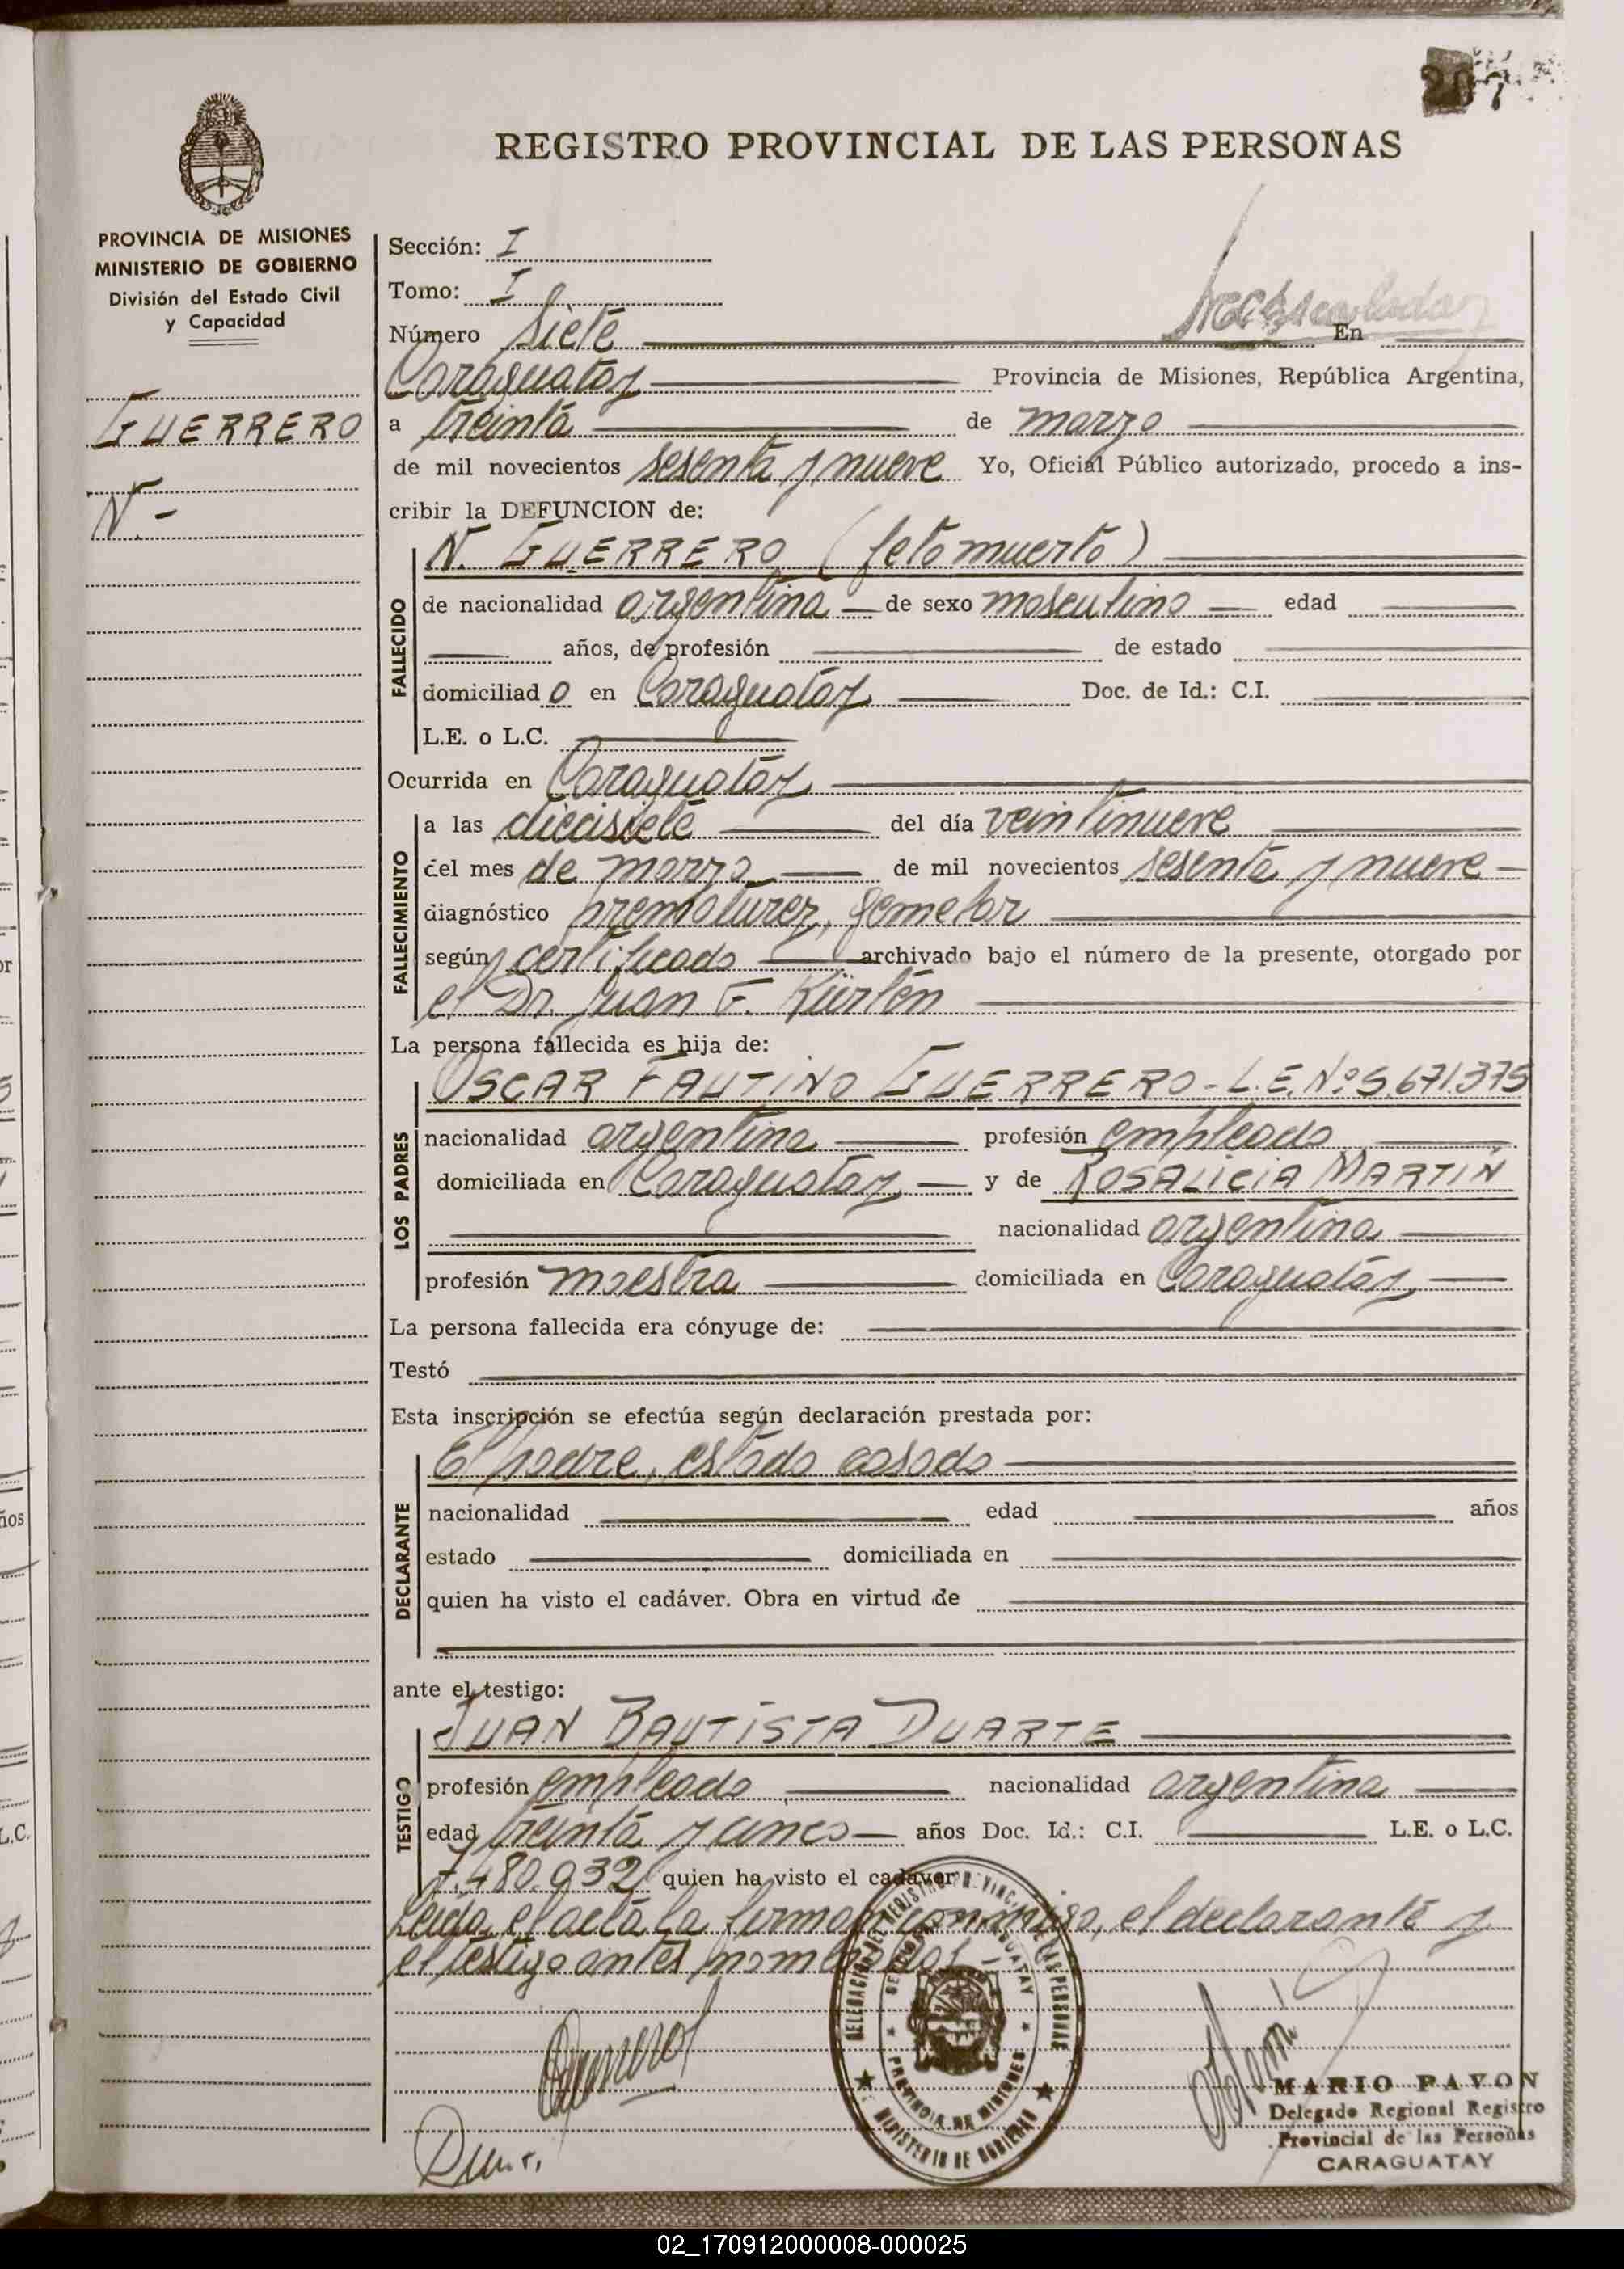 207
REGISTRO PROVINCIAL DE LAS PERSONAS
PROVINCIA DE MISIONES
MINISTERIO DE GOBIERNO
División del Estado Civil
y Capacidad
GUERRERO
N. -
Sección: I
Tomo: I
Número siete En
Caraguatay Provincia de Misiones, República Argentina,
a treinta de marzo
de mil novecientos sesenta y nueve Yo, Oficial Público autorizado, procedo a ins-
cribir la DEFUNCION de:
FALLECIDO
N. GUERRERO (feto muerto)
de nacionalidad argentina de sexo masculino edad
años, de profesión de estado
domiciliad o en Caraguatay Doc. de Id.: C.I.
L.E. o L.C.
Ocurrida en Caraguatay
FALLECIMIENTO
a las diecisiete del día veintinueve
del mes de marzo de mil novecientos sesenta y nueve
diagnóstico prematurez, gemelar
según certificado archivado bajo el número de la presente, otorgado por
el Dr. Juan F. Kürten
La persona fallecida es hija de:
LOS PADRES
OSCAR FAUTINO GUERRERO - L.E. Nº 5.671.375
nacionalidad argentina profesión empleado
domiciliada en Caraguatay y de ROSALICIA MARTIN
nacionalidad argentina
profesión maestra domiciliada en Caraguatay
La persona fallecida era cónyuge de:
Testó
Esta inscripción se efectúa según declaración prestada por:
DECLARANTE
El padre, estado casado
nacionalidad edad años
estado domiciliada en
quien ha visto el cadáver. Obra en virtud de
ante el testigo:
TESTIGO
JUAN BAUTISTA DUARTE
profesión empleado nacionalidad argentina
edad treinta y cinco años Doc. Id.: C.I. L.E. o L.C.
7.480.932 quien ha visto el cadáver
Leída el acta la firman conmigo, el declarante y
el testigo antes nombrados.-
DELEGACION DEL REGISTRO PROVINCIAL DE LAS PERSONAS
CARAGUATAY
PROVINCIA DE MISIONES
MINISTERIO DE GOBIERNO
MARIO PAVON
Delegado Regional Registro
Provincial de las Personas
CARAGUATAY
02_170912000008-000025